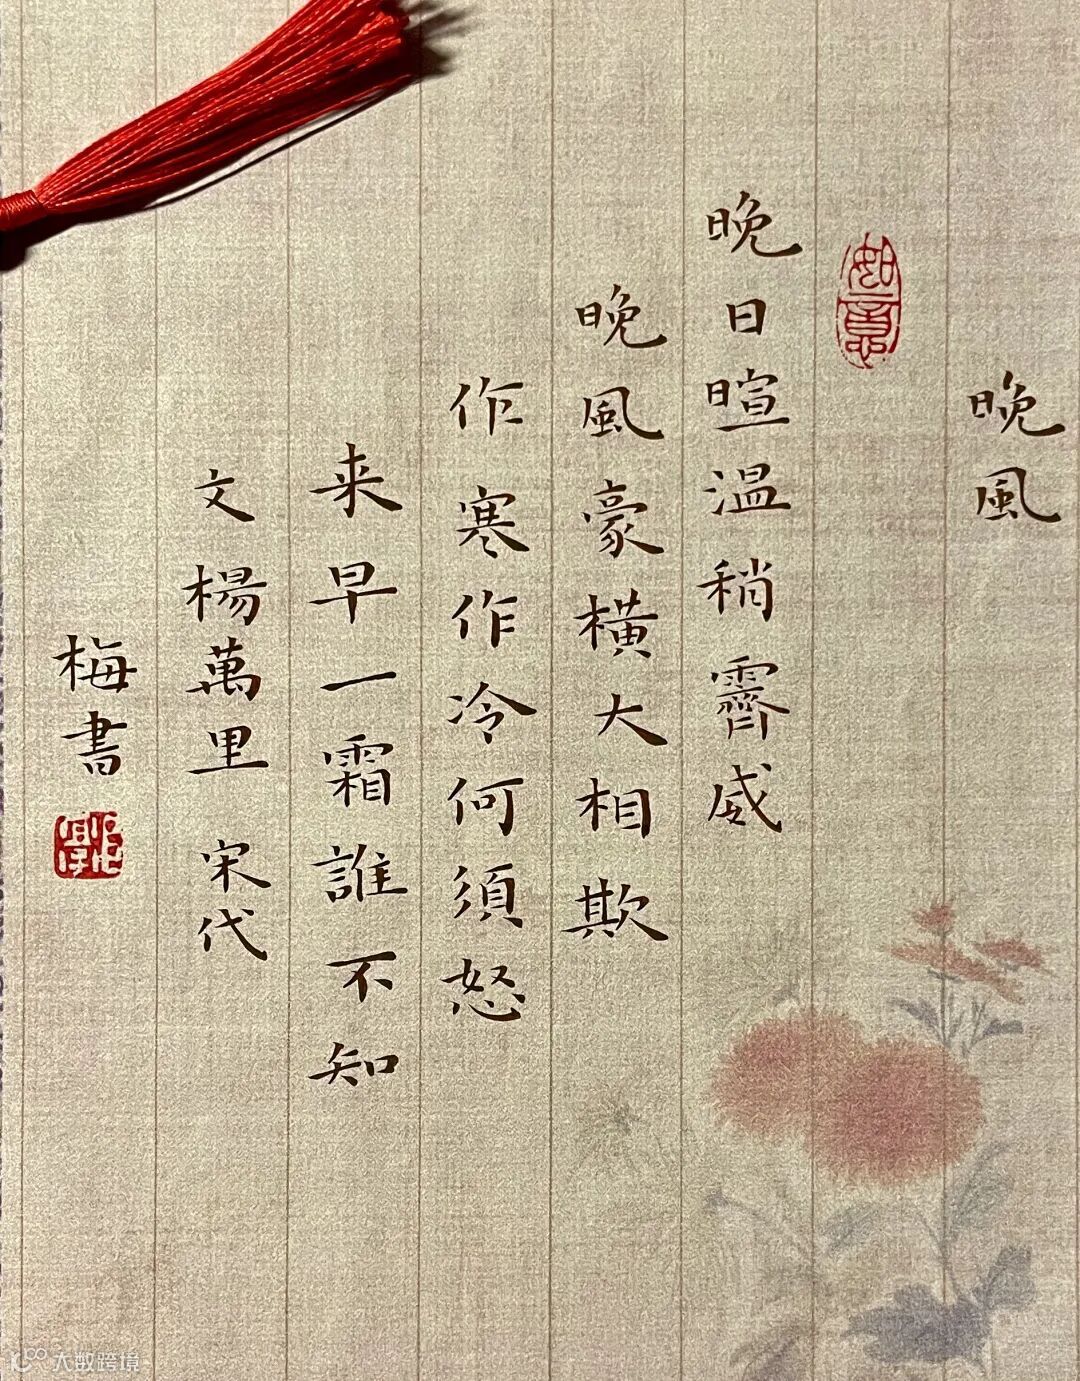 晚風
如意
晚日暄温稍霽威
晚風豪橫大相欺
作寒作冷何須怒
来早一霜誰不知
文楊萬里 宋代
梅書
大数跨境